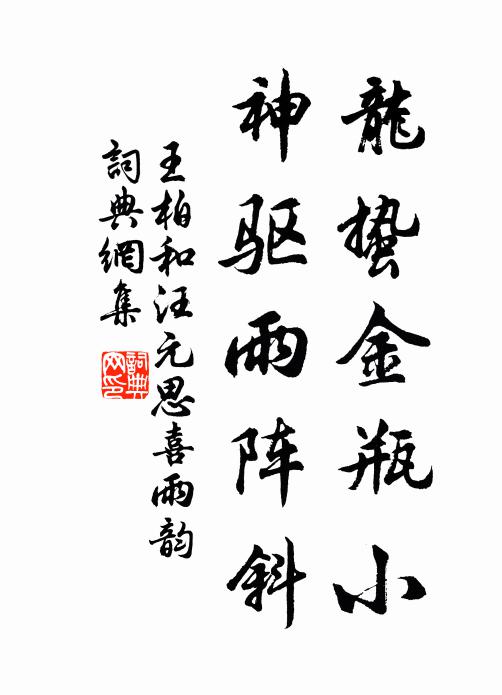 龍蛰金瓶小
神驱雨阵斜
王柏和汪元思喜雨韵
詞典網集
詞典网印